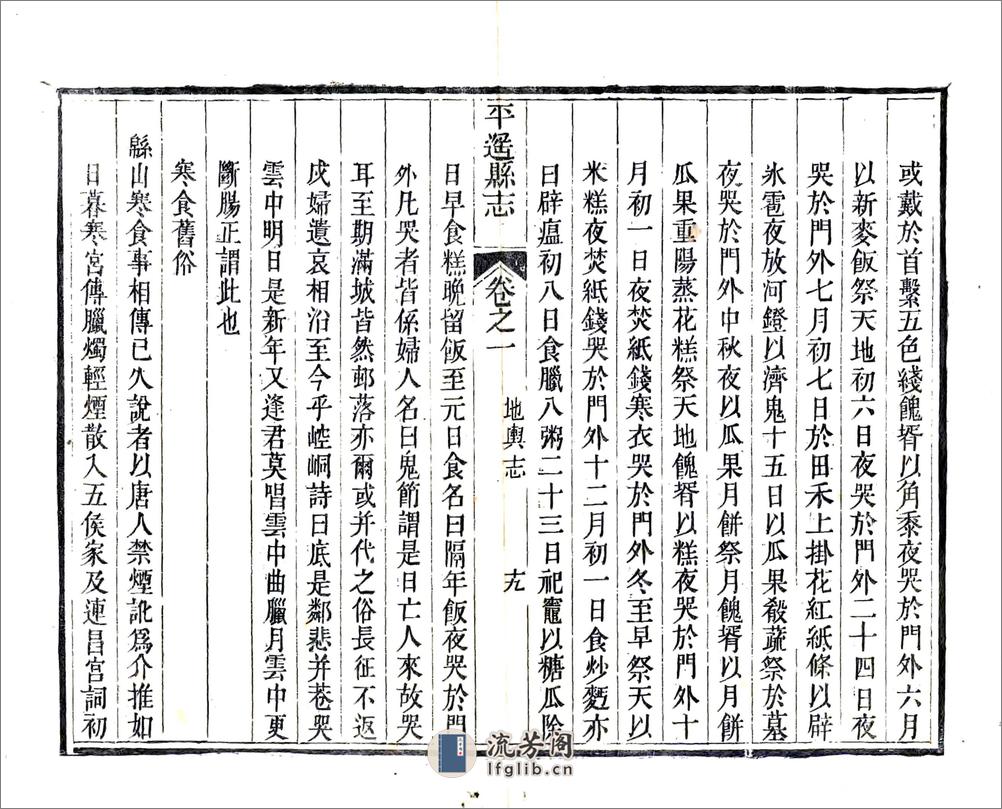 或戴於首繫五色綫餽壻以角黍夜哭於門外六月
以新麥飯祭天地初六日夜哭於門外二十四日夜
哭於門外七月初七日於田禾上掛花紅紙條以辟
氷雹夜放河鐙以濟鬼十五日以瓜果殽蔬祭於墓
夜哭於門外中秋夜以瓜果月餅祭月餽壻以月餅
瓜果重陽蒸花糕祭天地餽壻以糕夜哭於門外十
月初一日夜焚紙錢寒衣哭於門外冬至早祭天以
米糕夜焚紙錢哭於門外十二月初一日食炒麵亦
曰辟瘟初八日食臘八粥二十三日祀竈以糖瓜除
平遥縣志
卷之一
地輿志
十九
日早食糕晚留飯至元日食名曰隔年飯夜哭於門
外凡哭者皆係婦人名曰鬼節謂是日亡人來故哭
耳至期滿城皆然邨落亦爾或并代之俗長征不返
戍婦遺哀相沿至今乎崆峒詩曰底是鄰悲并巷哭
雲中明日是新年又逢君莫唱雲中曲臘月雲中更
斷腸正謂此也
寒食舊俗
緜山寒食事相傳已久說者以唐人禁煙訛爲介推如
日暮寒宮傳臘燭輕煙散入五侯家及連昌宮詞初
流芳閣
lfglib.cn